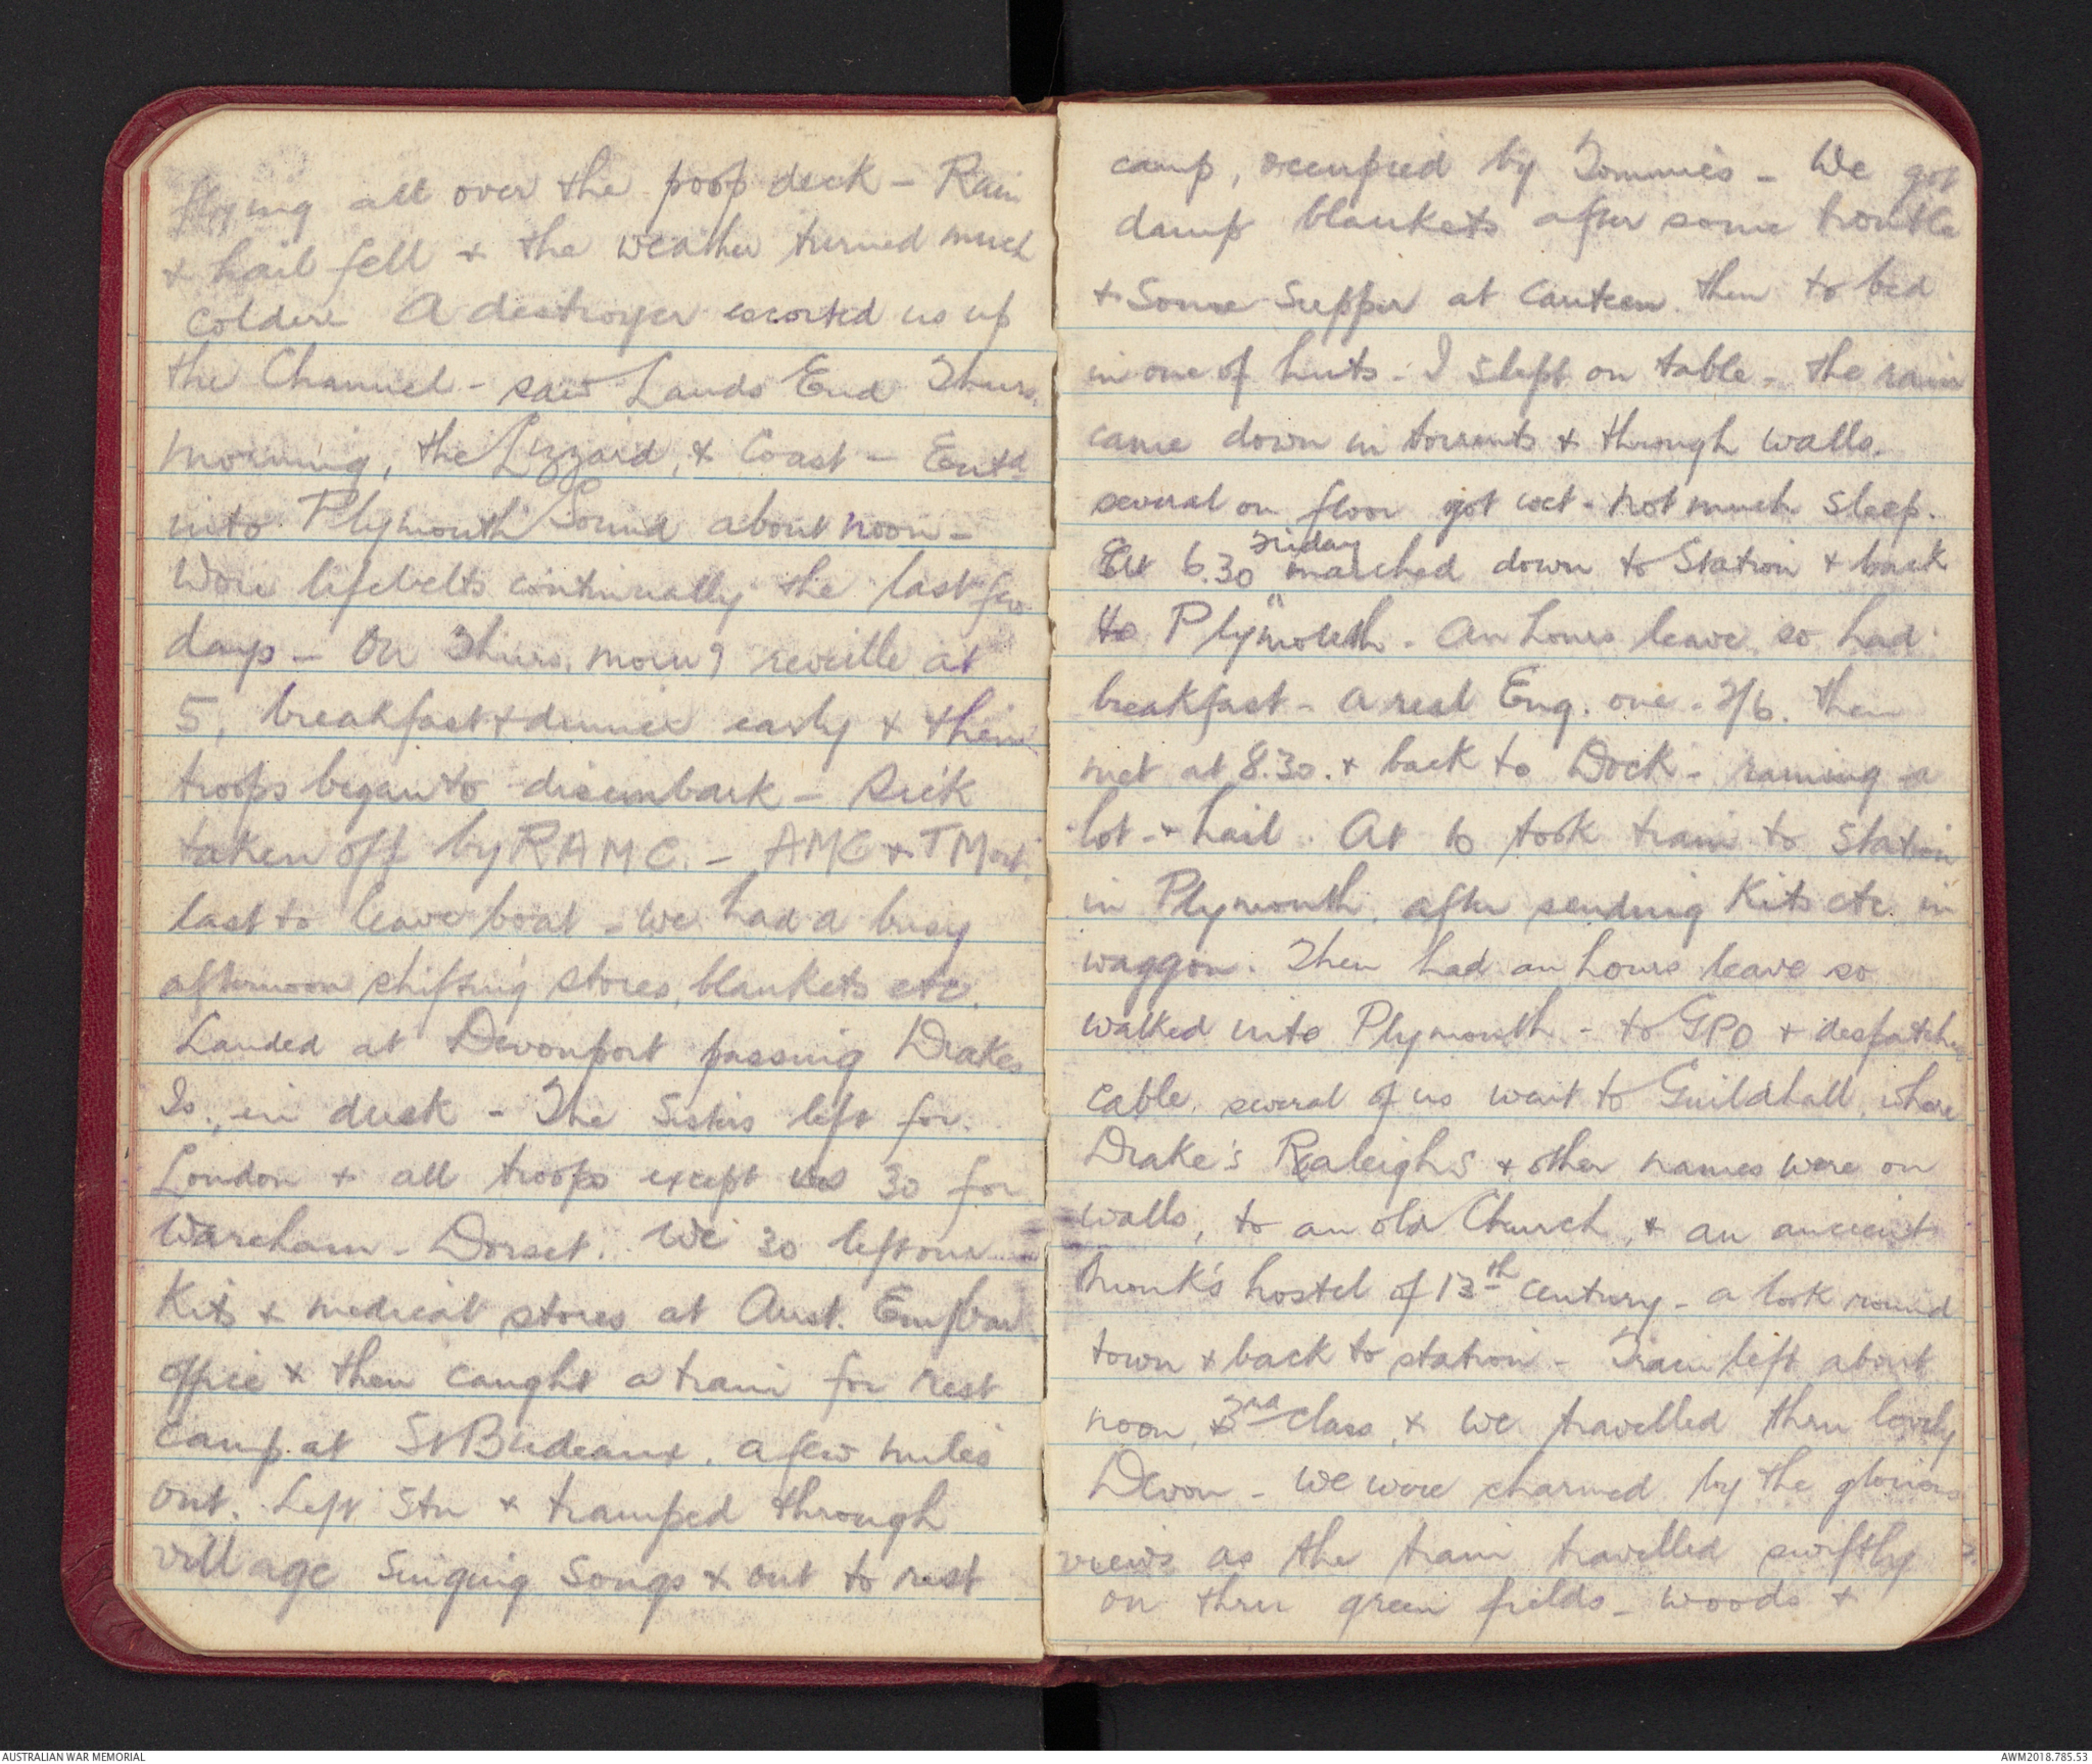 flying all over the poop deck - Rain
& hail fell & the weather turned much
colder. A destroyer escorted us up
the Channel - saw Lands End Thurs.
morning, the Lizzard, & Coast - Entd
into Plymouth Sound about noon -
Wore lifebelts continually the last few
days - On Thurs. morng reveille at
5, breakfast & dinner early & then
troops began to disembark - Sick
taken off by RAMC. - AMC & TMort.
last to leave boat - we had a busy
afternoon shifting stores, blankets etc.
Landed at Devonport passing Drakes
Is., in dusk - The Sisters left for
London & all troops except us 30 for
Wareham - Dorset. We 30 left our
Kits & medical stores at Aust.
office & then caught a train for rest
camp at St Budeaux. a few miles
out. Left Stn & tramped through
village singing songs & out to rest
camp, occupied by Tommies - We got
damp blankets after some trouble
& Some Supper at Canteen. then to bed
in one of huts. I slept on table - the rain
came down in torrents & through walls.
several on floor got wet - not much sleep.
At 6.30 Friday marched down to Station & back
to Plymouth. An hours leave so had
breakfast - a real Eng. one - 2/6. then
met at 8.30. & back to Dock - raining a
lot - & hail. At 10 took train to station
in Plymouth, after sending Kits etc. in
waggon. Then had an hours leave so
walked into Plymouth - to GPO & despatched
cable. several of us went to Guildhall, where
Drake's Raleighs & other names were on
walls, to an old Church, & an ancient
monk's hostel of 13th century - a look round
town & back to station - Train left about
noon, 3rd class, & we travelled thru lovely
Devon - we were charmed by the glorious
views as the train travelled swiftly
on thru green fields - woods &
AUSTRALIAN WAR MEMORIAL
AWM2018.785.53